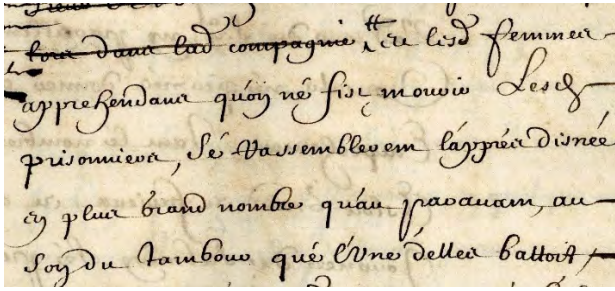 lors dans lad compagnie et lesd femmes
apprehendans quon né fist mourir Lesd
prisonniers, sé Rassemblerent láppres disnée
en plus Grand nombre quau paravant, au
son du tambour qué lVne délles battoit,